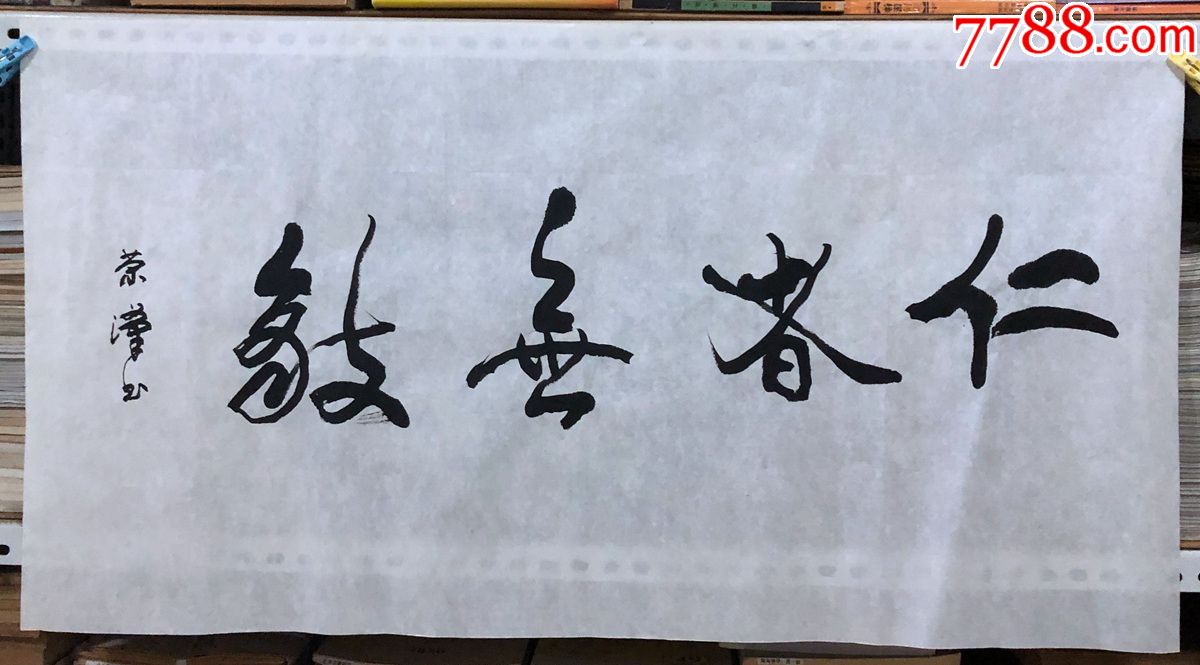 7788.com
仁者無敵
荣漢书